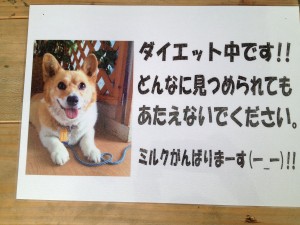 ダイエット中です!!
どんなに見つめられても
あたえないでください。
ミルクがんばりまーす(ー_ー)!!